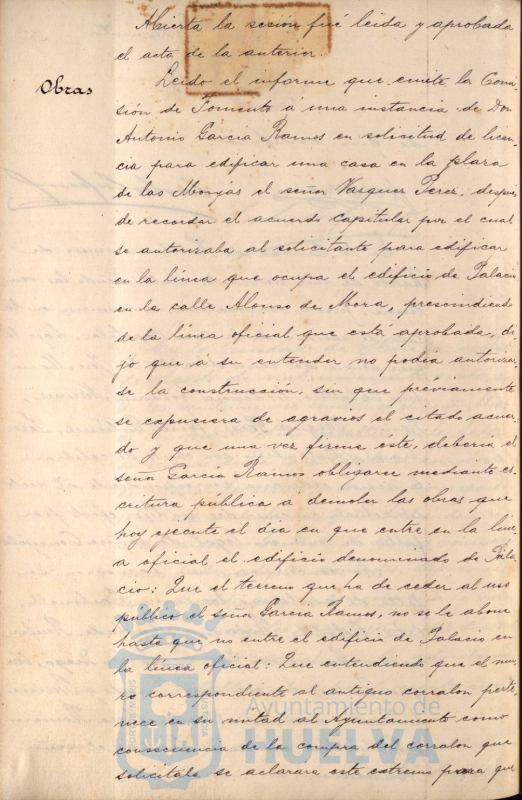 Abierta la sesión fué leida y aprobada
el acta de la anterior.
Obras
Leido el informe que emite la Comi
sión de Fomento á una instancia de Don
Antonio Garcia Ramos en solicitud de licen
cia para edificar una casa en la plaza
de las Monjas el señor Vasquez Perez, despues
de recordar el acuerdo capitular por el cual
se autorizaba al solicitante para edificar
en la línea que ocupa el edificio de Palacio
en la calle Alonso de Mora, prescindiendo
de la línea oficial que está aprobada, di
jo que á su entender no podia autorizar
se la construcción, sin que préviamente
se expusiera de agravios el citado acuer
do y que una vez firme éste, debería el
señor Garcia Ramos obligarse mediante es
critura pública á demoler las obras que
hoy ejecute el dia en que entre en la líne
a oficial el edificio denominado de Pala
cio: Que el terreno que ha de ceder al uso
público el señor Garcia Ramos, no se le abone
hasta que no entre el edificio de Palacio en
la línea oficial: Que entendiendo que el mu
ro correspondiente al antiguo corralon perte
nece en su mitad al Ayuntamiento como
consecuencia de la compra del corralon que
se aclarara este extremo para que
Ayuntamiento de
HUELVA